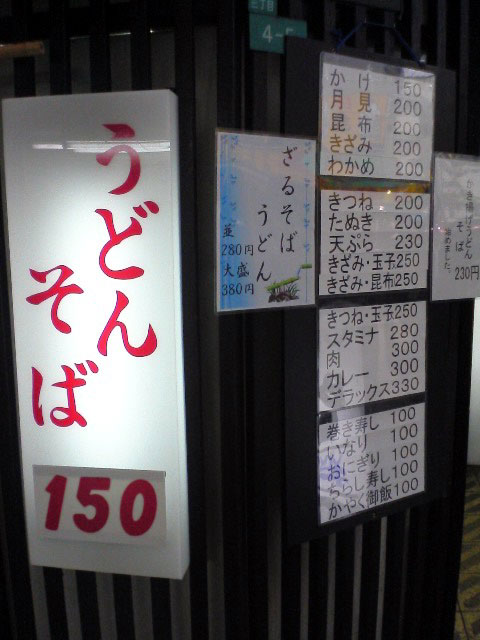 うどん
そば
150
丁目
4-5
ざるそば
うどん
並
280円
大盛
380円
かけ 150
月見 200
昆布 200
きざみ 200
わかめ 200
きつね 200
たぬき 200
天ぷら 230
きざみ・玉子 250
きざみ・昆布 250
きつね・玉子 250
スタミナ 280
肉 300
カレー 300
デラックス 330
巻き寿し 100
いなり 100
おにぎり 100
ちらし寿し 100
かやく御飯 100
かき揚げうどん
そば
始めました。
230円